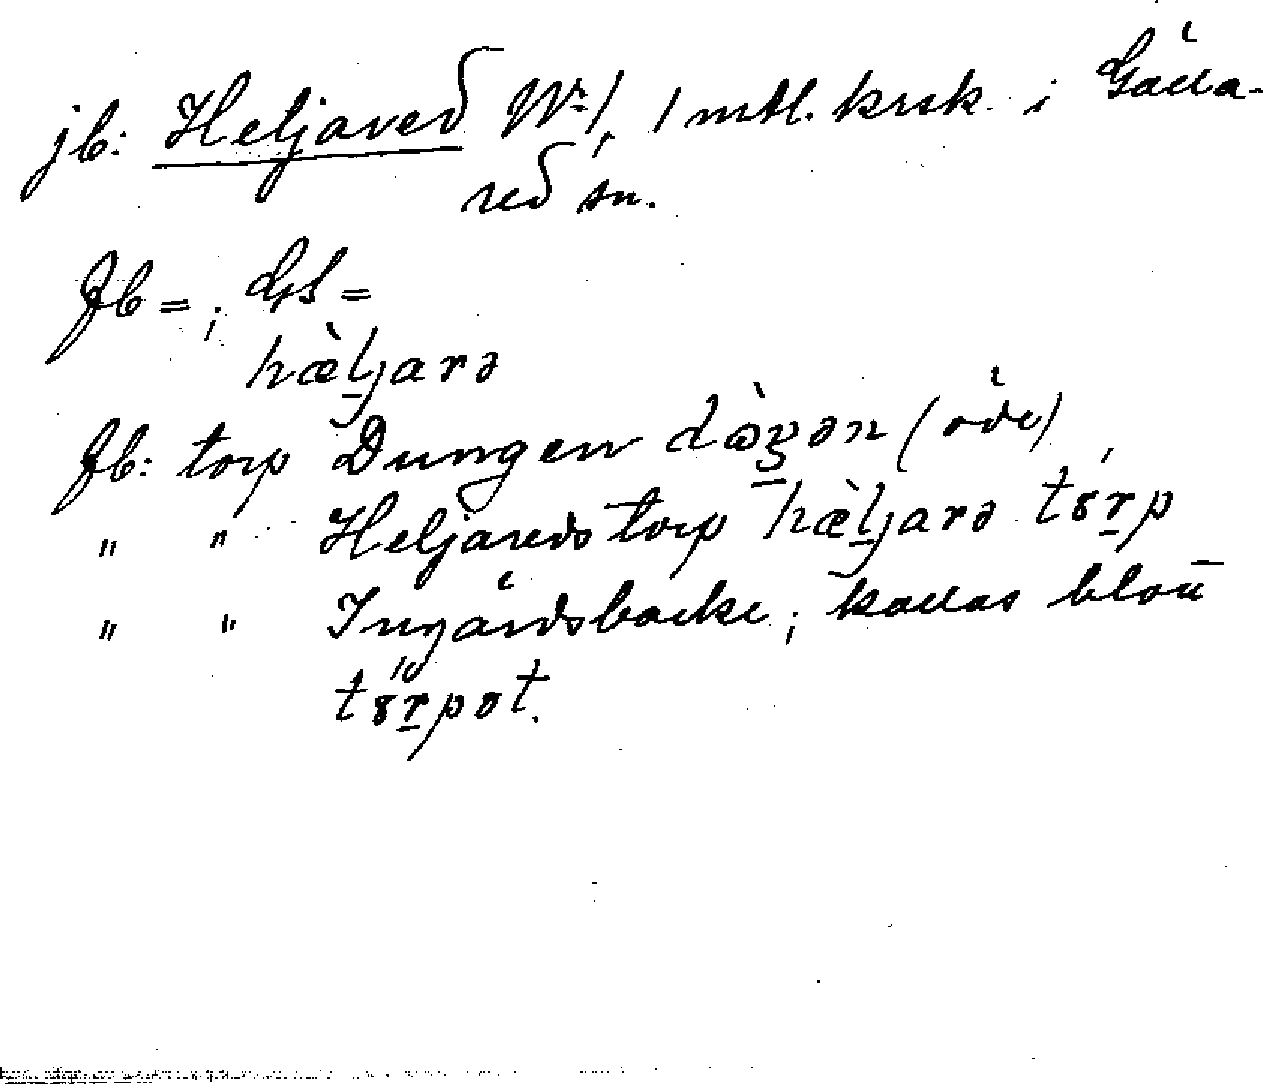 jb: Heljared Nr 1, 1 mtl. krsk. i Gälla-
red sn.
Jb = ; GS =
hæ̀ljarə
Jb: torp Dungen dòŋən (öde)
" " Heljaredstorp hæ̀ljarə tȣrp
" " Ingärdsbacke; kallas
tȣrpət.